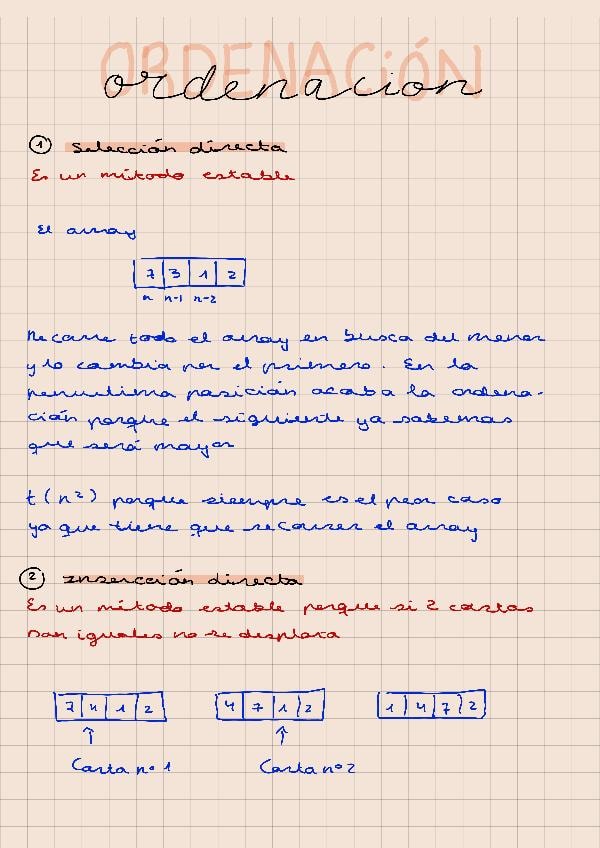 ORDENACIÓN
ordenacion
1 Selección directa
Es un método estable
El array
7 3 1 2
n n-1 n-2
Recorre todo el array en busca del menor
y lo cambia por el primero. En la
penultima posición acaba la ordena-
ción porque el siguiente ya sabemos
que será mayor
t(n²) porque siempre es el peor caso
ya que tiene que recorrer el array
2 Insercción directa
Es un método estable porque si 2 cartas
son iguales no se desplaza
7 4 1 2 4 7 1 2 1 4 7 2
↑ ↑
Carta nº 1 Carta nº 2